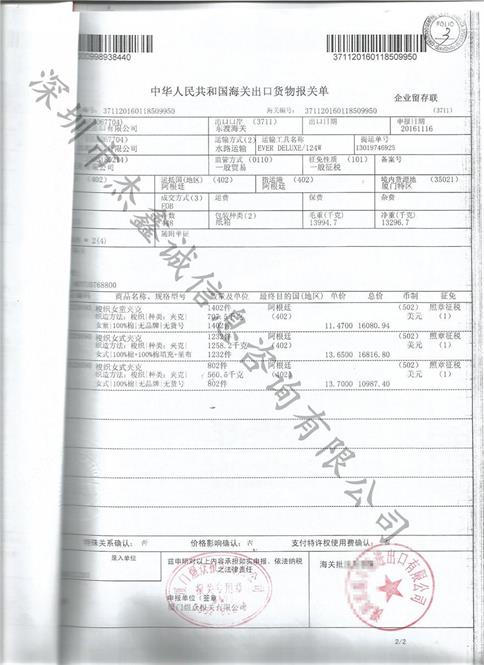 FOLIO
3
000998938440
371120160118509950
中华人民共和国海关出口货物报关单
企业留存联
371120160118509950
海关编号: 371120160118509950
(3711)
出口口岸 (3711)
东渡海关
出口日期
申报日期
20161116
有限公司
运输方式(2)
水路运输
运输工具名称
EVER DELUXE/124W
提运单号
13019746925
有限公司
监管方式 (0110)
一般贸易
征免性质 (101)
一般征税
备案号
(402)
运抵国(地区) (402)
阿根廷
指运港 (402)
阿根廷
境内货源地 (35021)
厦门特区
成交方式(3)
FOB
运费
保费
杂费
件数
包装种类(2)
纸箱
毛重(千克)
13994.7
净重(千克)
13296.7
随附单证
* 2(4)
商品名称、规格型号 数量及单位 最终目的国(地区) 单价 总价 币制 征免
梭织女童夹克 1402件 阿根廷 (502) 照章征税
织造方法: 梭织|种类: 夹克| (402) 美元 (1)
女童|100%棉|无品牌|无货号 1402件 11.4700 16080.94
梭织女式夹克 1232件 阿根廷 (502) 照章征税
织造方法: 梭织|种类: 夹克| 1258.2千克 (402) 美元 (1)
1232件 13.6500 16816.80
梭织女式夹克 802件 阿根廷 (502) 照章征税
织造方法: 梭织|种类: 夹克| 560.5千克 (402) 美元 (1)
女式|100%棉|无品牌|无货号 802件 13.7000 10987.40
深圳市杰鑫诚信息咨询有限公司
特殊关系确认: 否
价格影响确认: 否
支付特许权使用费确认:
录入单位
兹申明对以上内容承担如实申报、依法纳税
之法律责任
海关批
申报单位(签章)
报关专用章
进出口有限公司
2/2